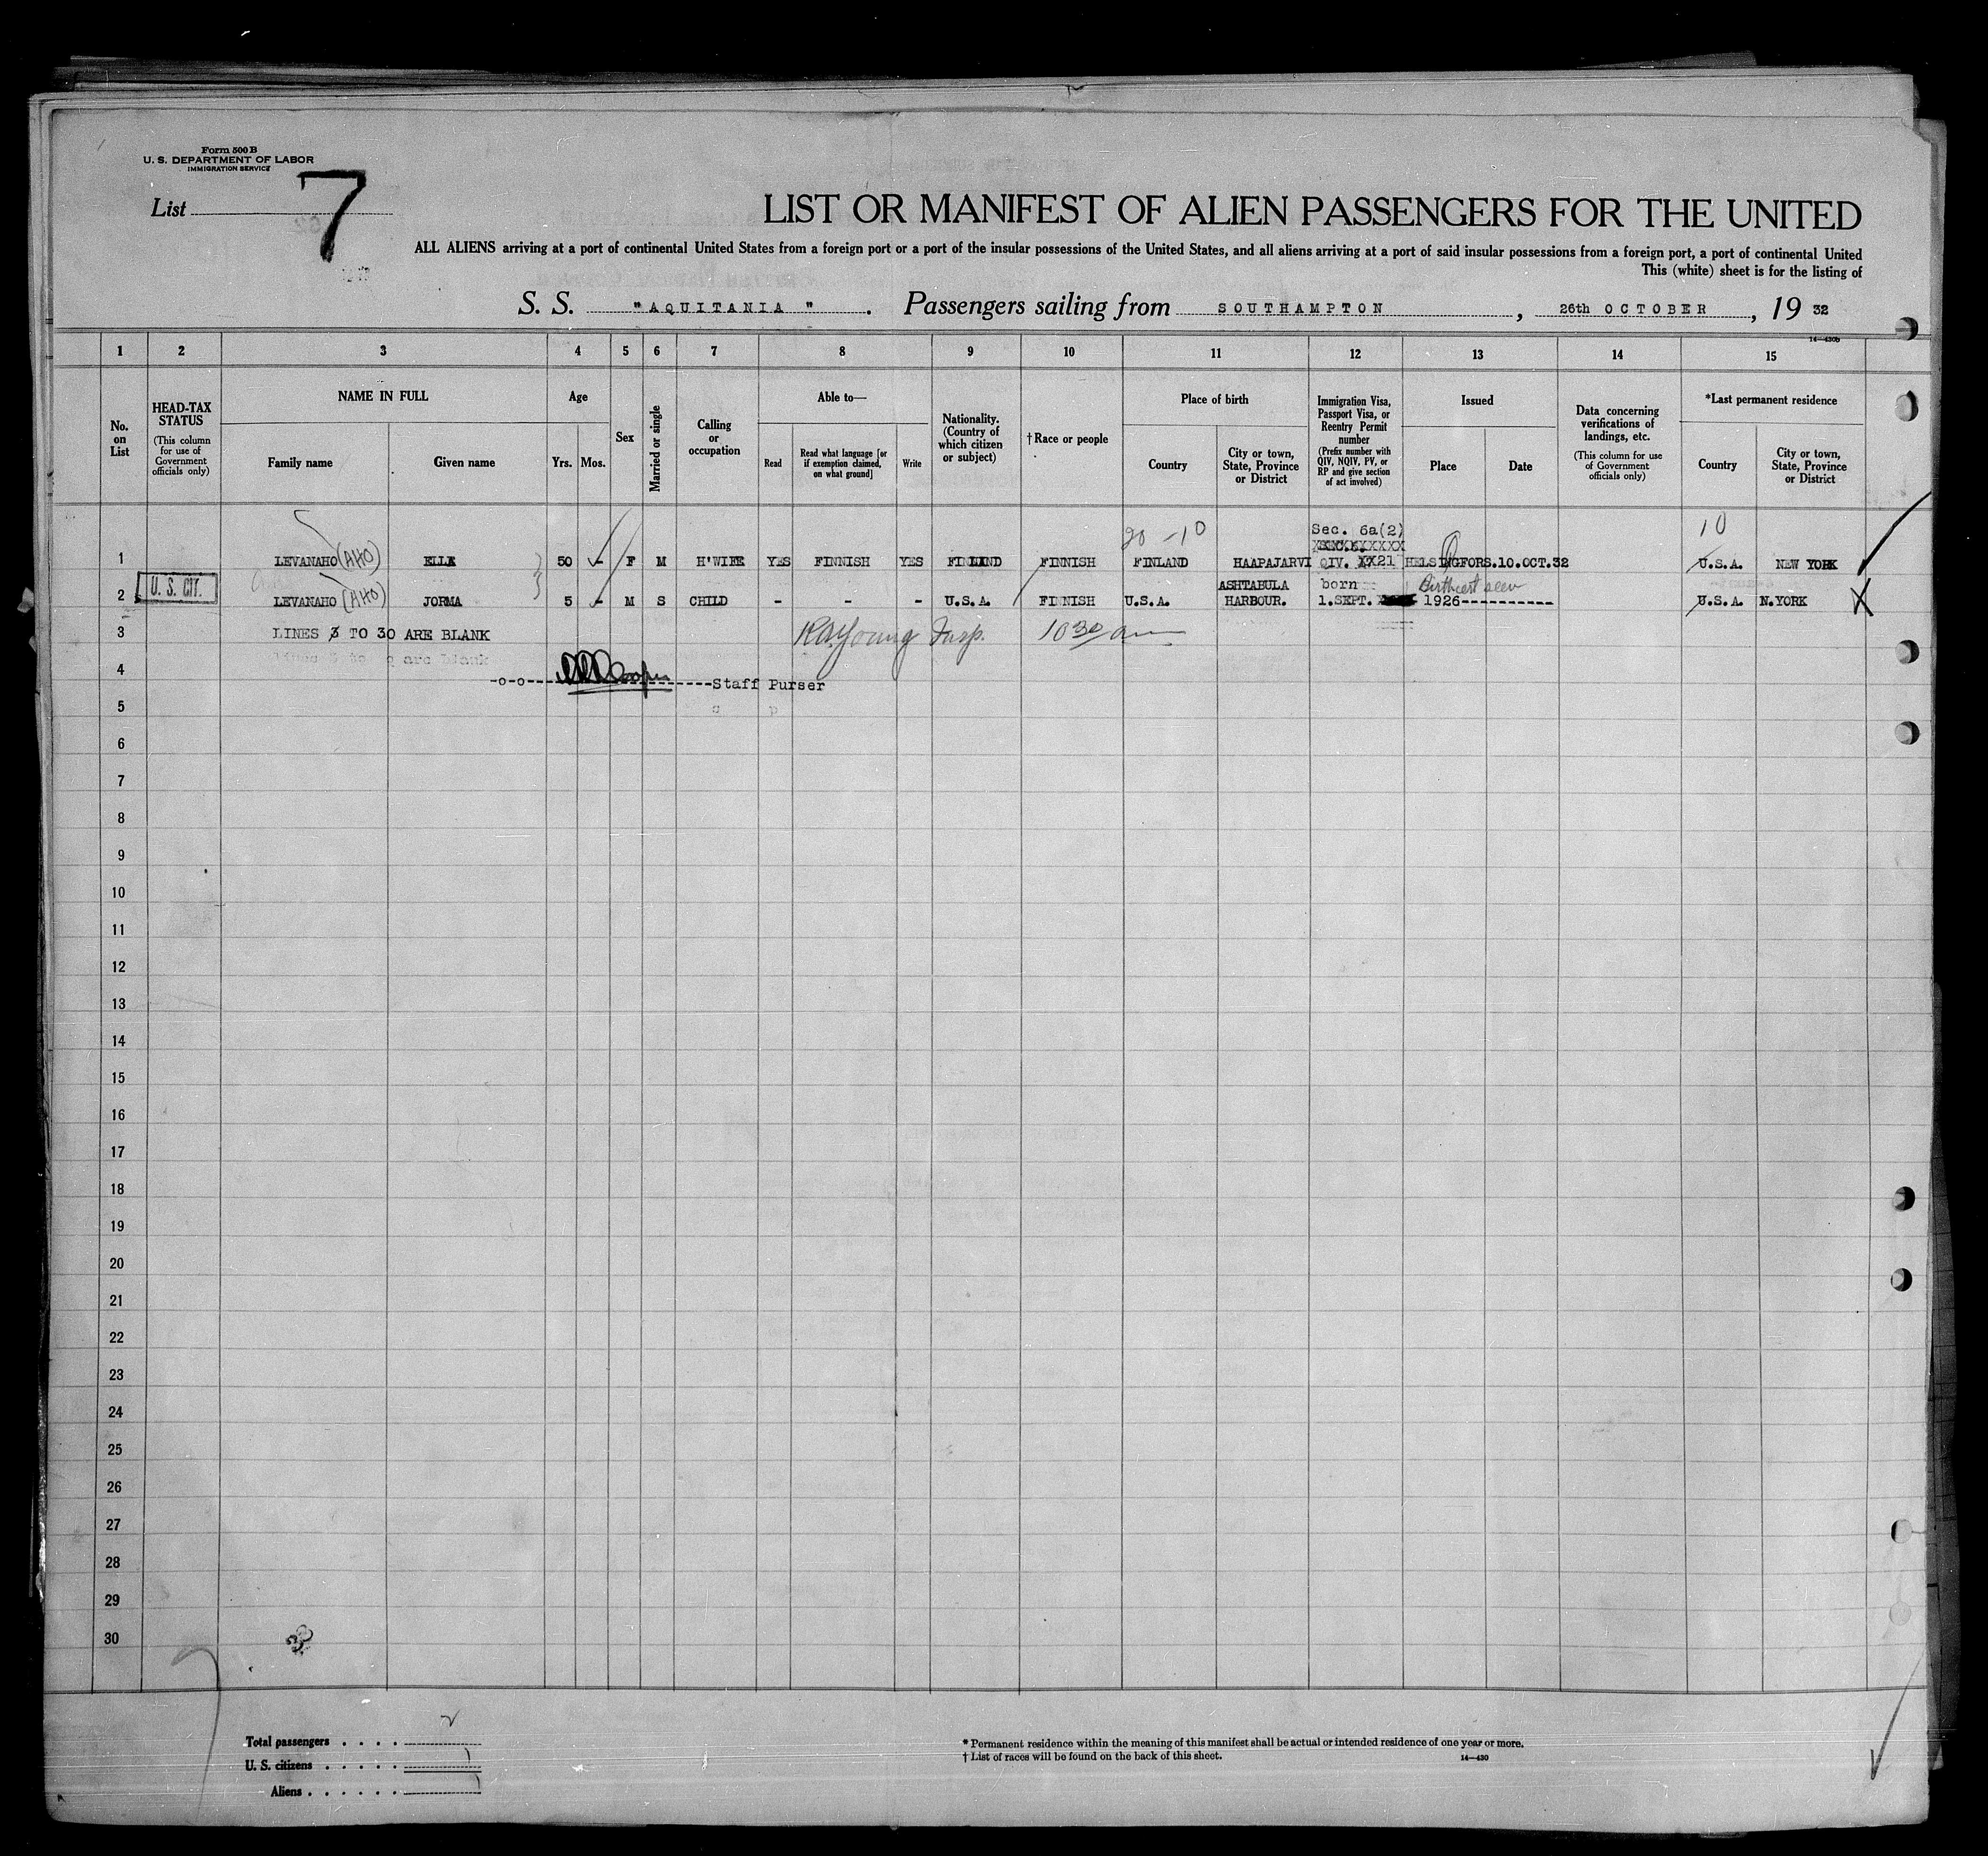 Form 500 B
U. S. DEPARTMENT OF LABOR
IMMIGRATION SERVICE
List 7
LIST OR MANIFEST OF ALIEN PASSENGERS FOR THE UNITED
ALL ALIENS arriving at a port of continental United States from a foreign port or a port of the insular possessions of the United States, and all aliens arriving at a port of said insular possessions from a foreign port, a port of continental United
This (white) sheet is for the listing of
S. S. "AQUITANIA". Passengers sailing from SOUTHAMPTON, 26th OCTOBER, 19 32
14—430b
1 2 3 4 5 6 7 8 9 10 11 12 13 14 15
No. on List
HEAD-TAX STATUS (This column for use of Government officials only)
NAME IN FULL
Family name
Given name
Age
Yrs. Mos.
Sex
Married or single
Calling or occupation
Able to—
Read
Read what language [or if exemption claimed, on what ground]
Write
Nationality. (Country of which citizen or subject)
†Race or people
Place of birth
Country
City or town, State, Province or District
Immigration Visa, Passport Visa, or Reentry Permit number (Prefix number with QIV, NQIV, PV, or RP and give section of act involved)
Issued
Place
Date
Data concerning verifications of landings, etc. (This column for use of Government officials only)
*Last permanent residence
Country
City or town, State, Province or District
20 -10
Sec. 6a(2)
10
1 LEVANAHO (AHO) ELLA 50 - F M H'WIFE YES FINNISH YES FINLAND FINNISH FINLAND HAAPAJARVI QIV. 21 HELSINGFORS. 10.OCT.32 U.S.A. NEW YORK
U. S. CIT.
ASHTABULA born Birth cert seen
2 LEVANAHO (AHO) JORMA 5 - M S CHILD - - - U.S.A. FINNISH U.S.A. HARBOUR. 1.SEPT. 1926---------- U.S.A. N.YORK X
3 LINES 3 TO 30 ARE BLANK R A Young Insp. 10 30 am
4 -o-o- Cooper ------Staff Purser
5
6
7
8
9
10
11
12
13
14
15
16
17
18
19
20
21
22
23
24
25
26
27
28
29
30
Total passengers . . . . 2
U. S. citizens . . . . . 1
Aliens . . . . . . 1
* Permanent residence within the meaning of this manifest shall be actual or intended residence of one year or more.
† List of races will be found on the back of this sheet.
14—430